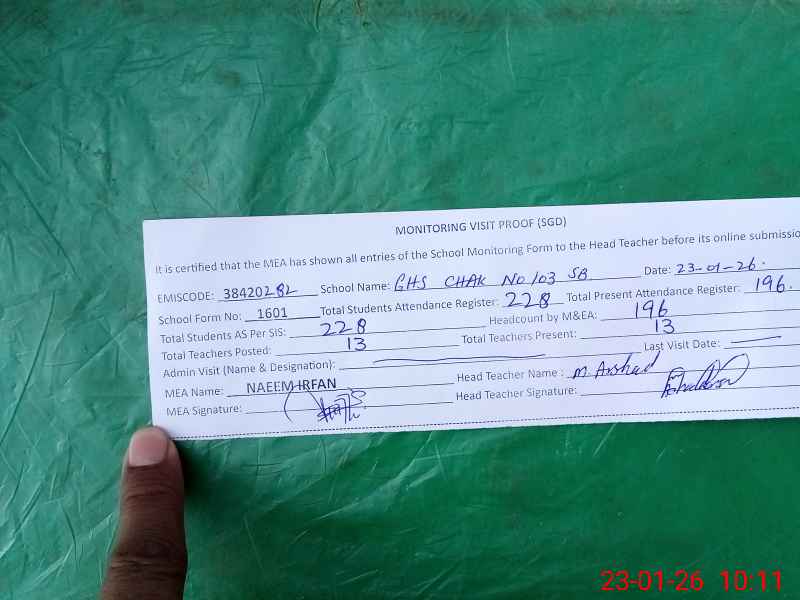 MONITORING VISIT PROOF (SGD)
It is certified that the MEA has shown all entries of the School Monitoring Form to the Head Teacher before its online submissio
EMISCODE: 38420282 School Name: GHS CHAK No 103 SB Date: 23-01-26.
School Form No: 1601 Total Students Attendance Register: 228 Total Present Attendance Register: 196.
Total Students AS Per SIS: 228 Headcount by M&EA: 196
Total Teachers Posted: 13 Total Teachers Present: 13
Admin Visit (Name & Designation): Last Visit Date:
MEA Name: NAEEM IRFAN Head Teacher Name : M. Arshad
MEA Signature: Head Teacher Signature:
23-01-26 10:11